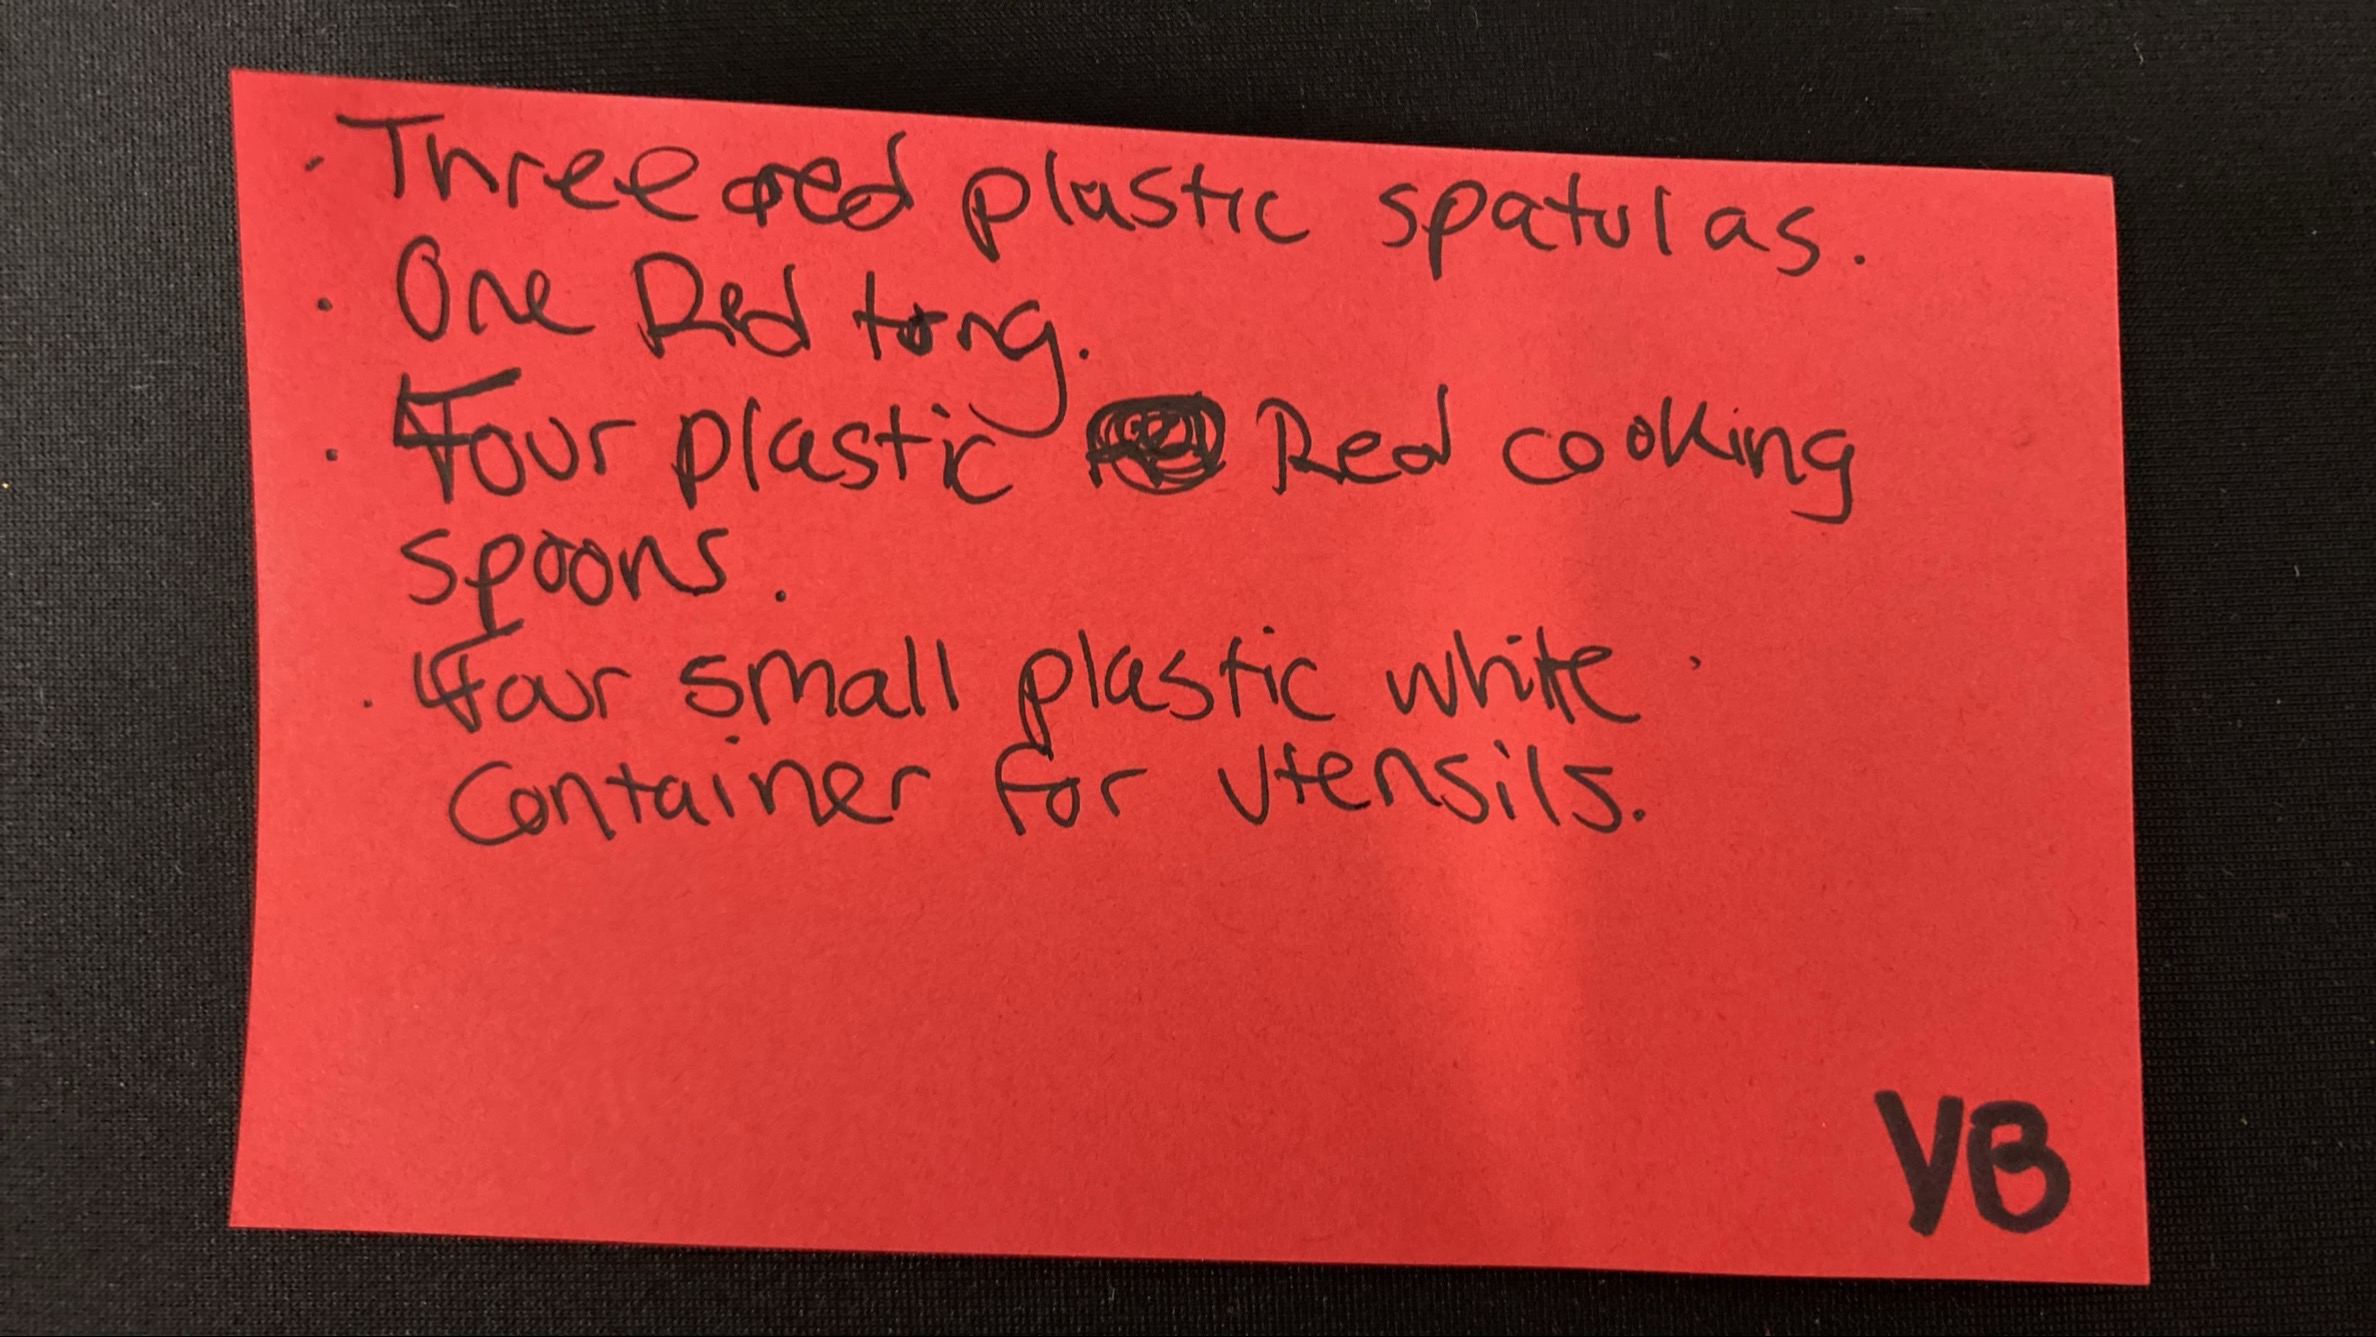 · Three red plastic spatulas.
· One Red tong.
· Four plastic Red cooking
spoons.
· Four small plastic white
Container for utensils.
VB